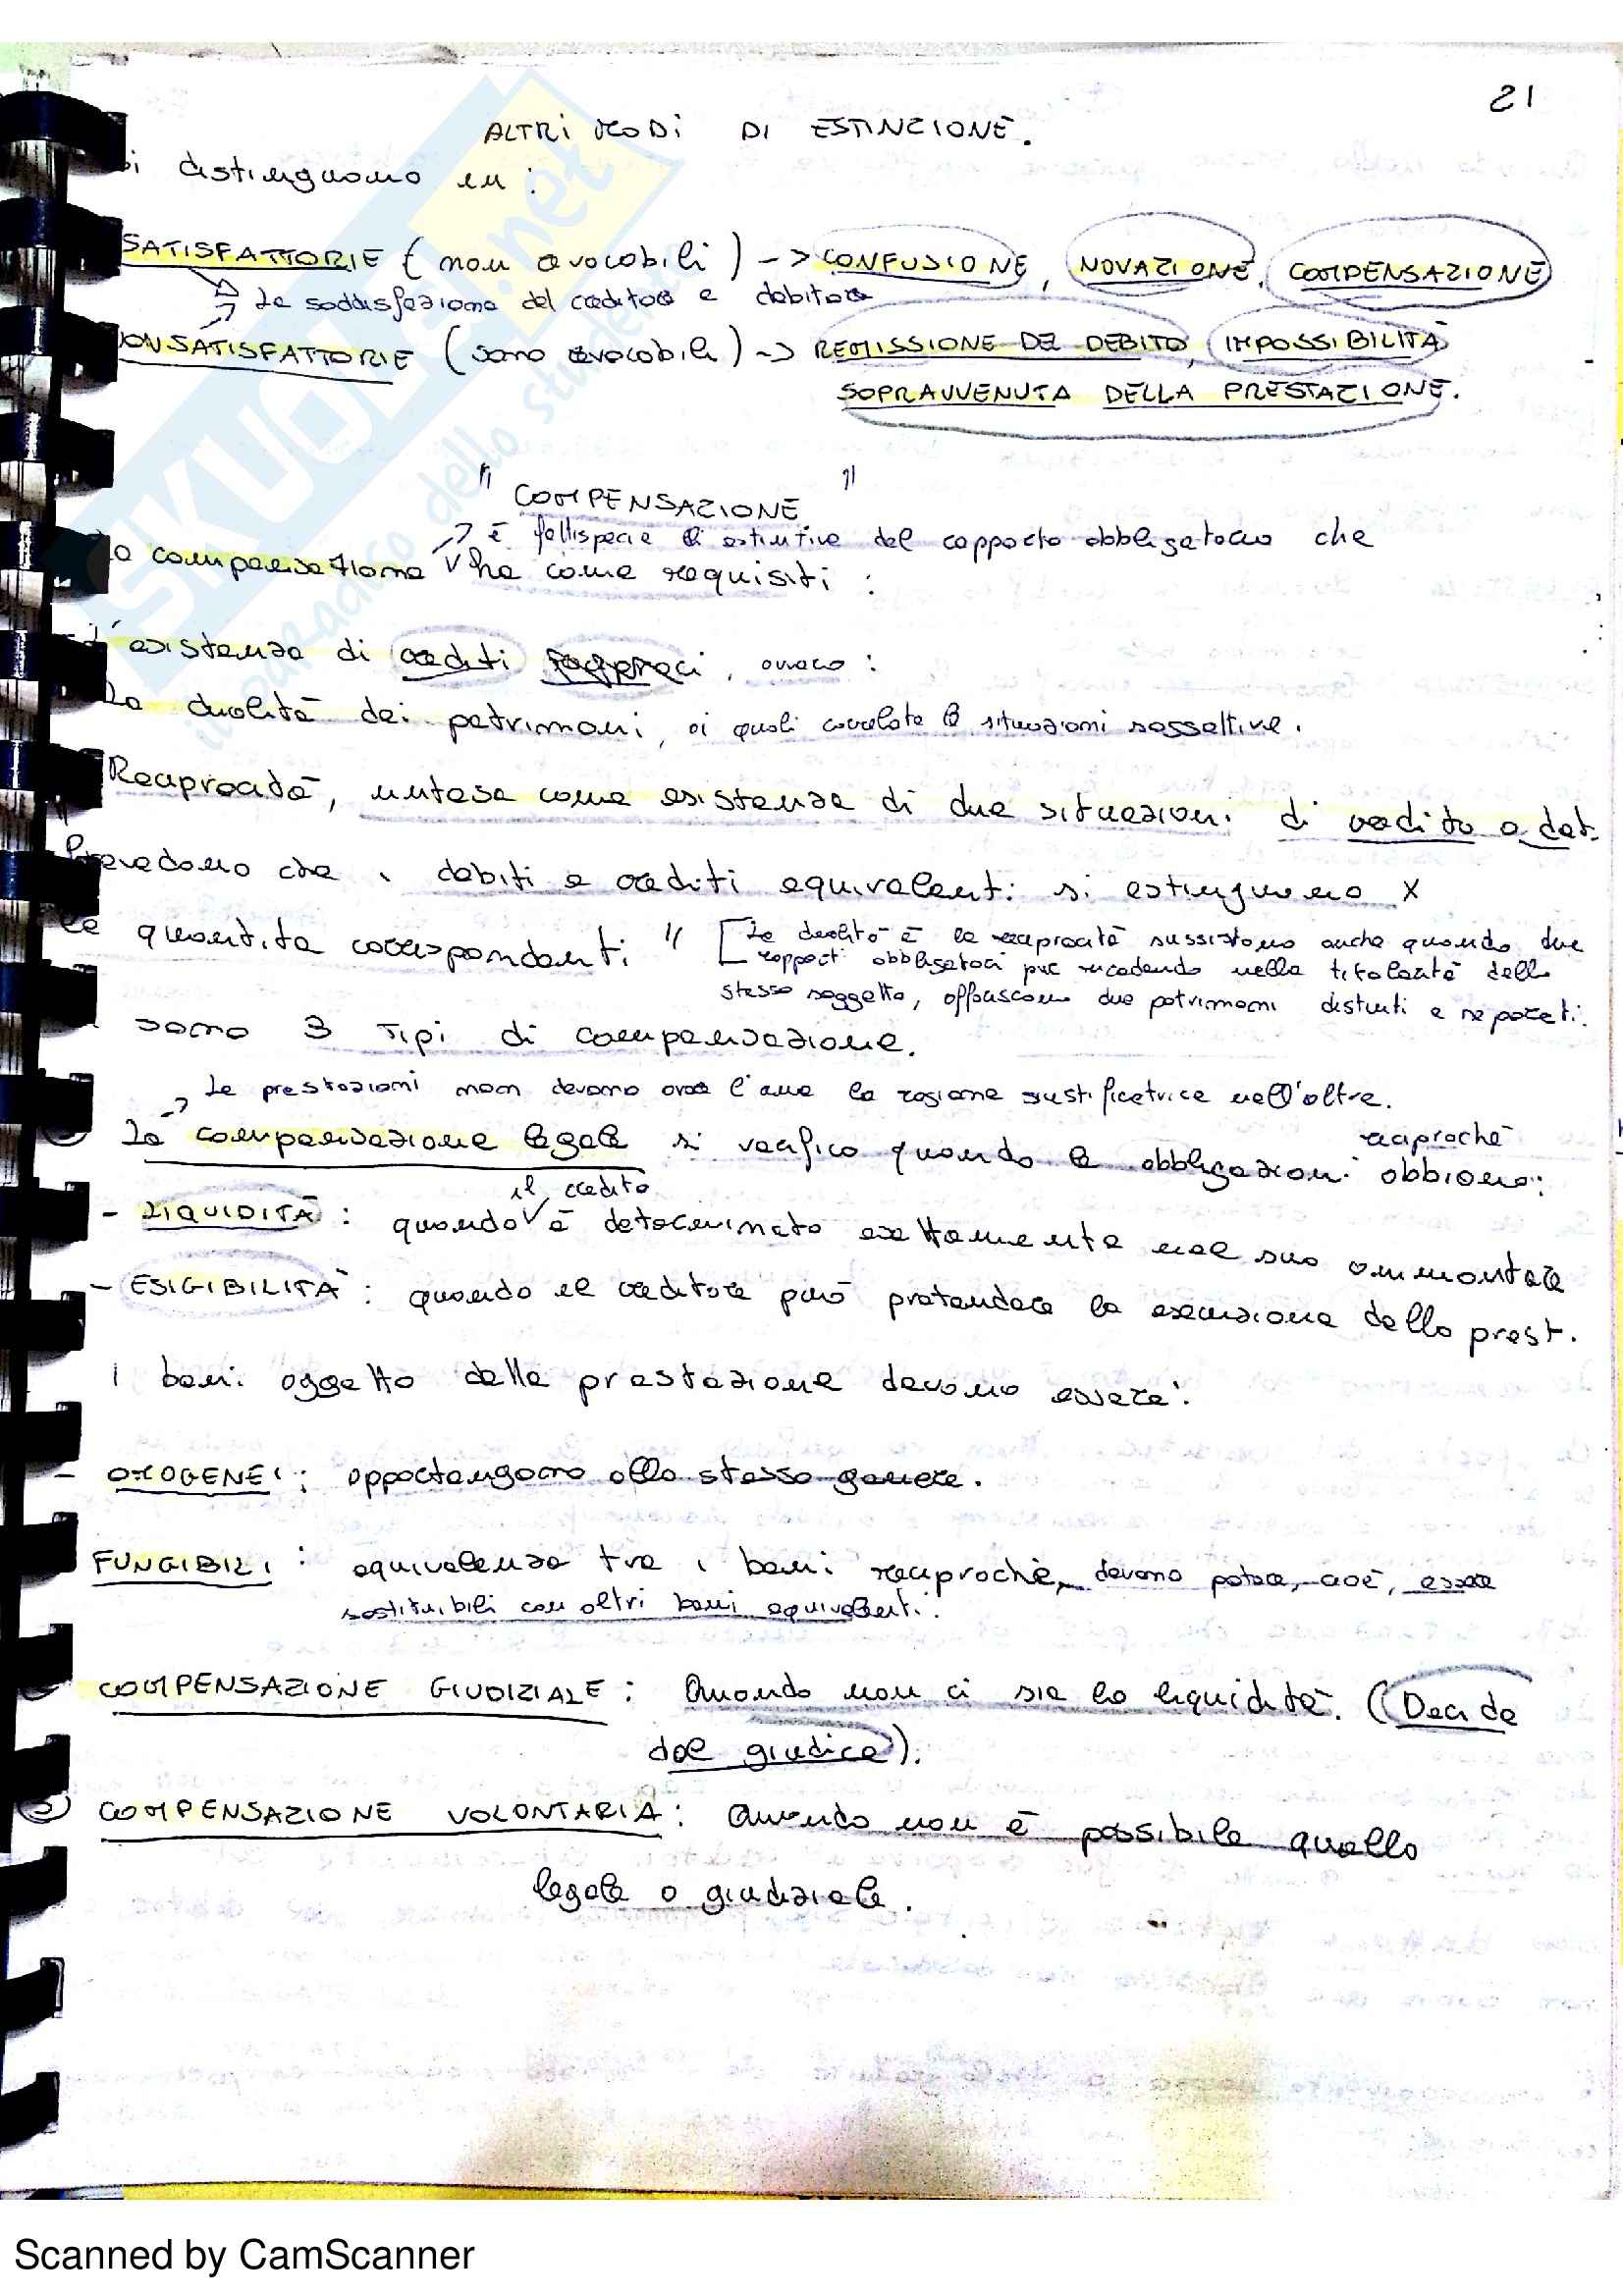 21
ALTRI MODI DI ESTINZIONE.
si distinguono in:
SATISFATTORIE (non revocabili) -> CONFUSIONE, NOVAZIONE, COMPENSAZIONE
La soddisfazione del creditore e debitore
NON SATISFATTORIE (sono revocabili) -> REMISSIONE DEL DEBITO, IMPOSSIBILITÀ
SOPRAVVENUTA DELLA PRESTAZIONE.
" COMPENSAZIONE "
è fattispecie estintive del rapporto obbligatorio che
La compensazione ha come requisiti:
L'esistenza di crediti reciproci, ovvero:
La dualità dei patrimoni, ai quali correlate le situazioni soggettive.
Reciprocità, intesa come esistenza di due situazioni di credito e deb.
"Prevedono che i debiti e crediti equivalenti si estinguono x
le quantità corrispondenti" [La dualità e la reciprocità sussistono anche quando due
rapporti obbligatori pur ricadendo nella titolarità dello
stesso soggetto, afferiscono due patrimoni distinti e separati.
sono 3 tipi di compensazione.
-> Le prestazioni non devono avere l'una la ragione giustificatrice nell'altra.
La compensazione legale si verifica quando le obbligazioni reciproche abbiano:
- LIQUIDITÀ: quando il credito è determinato esattamente nel suo ammontare
- ESIGIBILITÀ: quando il creditore può pretendere la esecuzione della prest.
I beni oggetto della prestazione devono essere:
- OMOGENEI: appartengono allo stesso genere.
FUNGIBILI: equivalenza tra i beni reciproche, devono potere, cioè, essere
sostituibili con altri beni equivalenti.
COMPENSAZIONE GIUDIZIALE: Quando non ci sia la liquidità. (Decide
dal giudice).
3) COMPENSAZIONE VOLONTARIA: Quando non è possibile quella
legale o giudiziale.
SKUOLA.net
il paradiso dello studente
Scanned by CamScanner